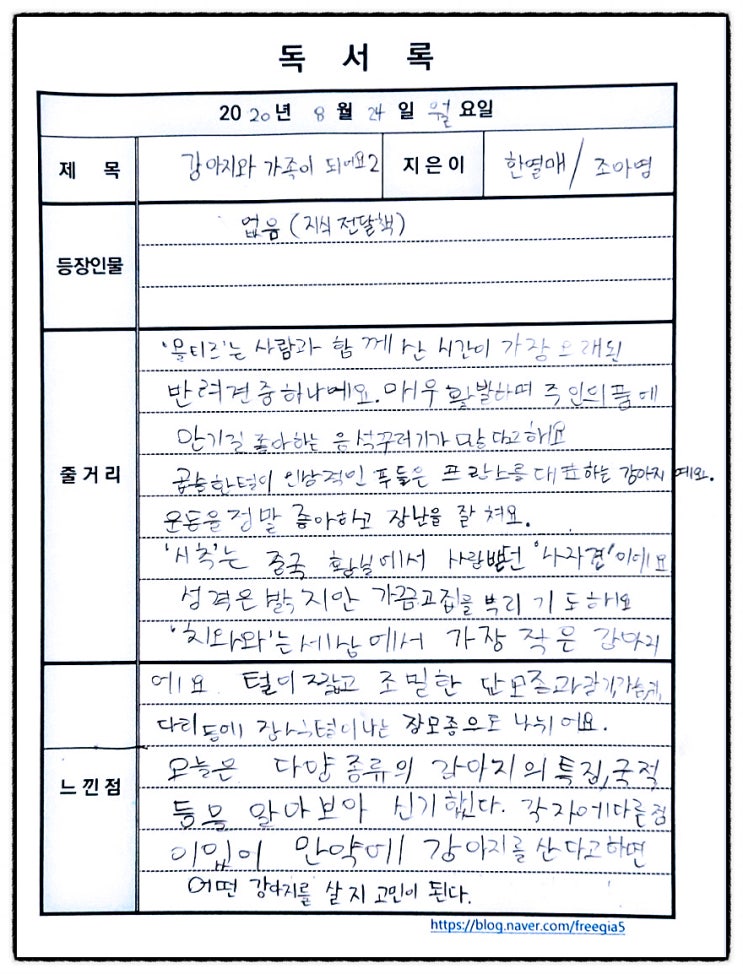 독 서 록
2020년 8월 24일 월요일
제 목 강아지와 가족이 되어요2 지은이 한열매/조아영
등장인물 없음(지식전달책)
줄거리
'몰티즈'는 사람과 함께 산 시간이 가장 오래된
반려견중하나예요. 매우 활발하며 주인의품에
안기길 좋아하는 응석꾸러기가 따로
곱슬한털이 인상적인 푸들은 프랑스를 대표하는 강아지 예요.
운동을 정말 좋아하고 장난을 잘 쳐요.
'시츄'는 중국 황실에서 사랑받던 '사자견'이에요
성격은 밝지만 가끔고집을 부리기도해요
'치와와'는 세상에서 가장 작은 강아지
에요 털이 짧고 조밀한 단모종과 귀, 가슴,
다리 등에 장식털이나는 장모종으로 나뉘어요.
느낀점
오늘은 다양 종류의 강아지의 특징,국적
등을 알아보아 신기했다. 각자에다른점
이있어 만약에 강아지를 산다고하면
어떤 강아지를 살지 고민이 된다.
https://blog.naver.com/freegia5